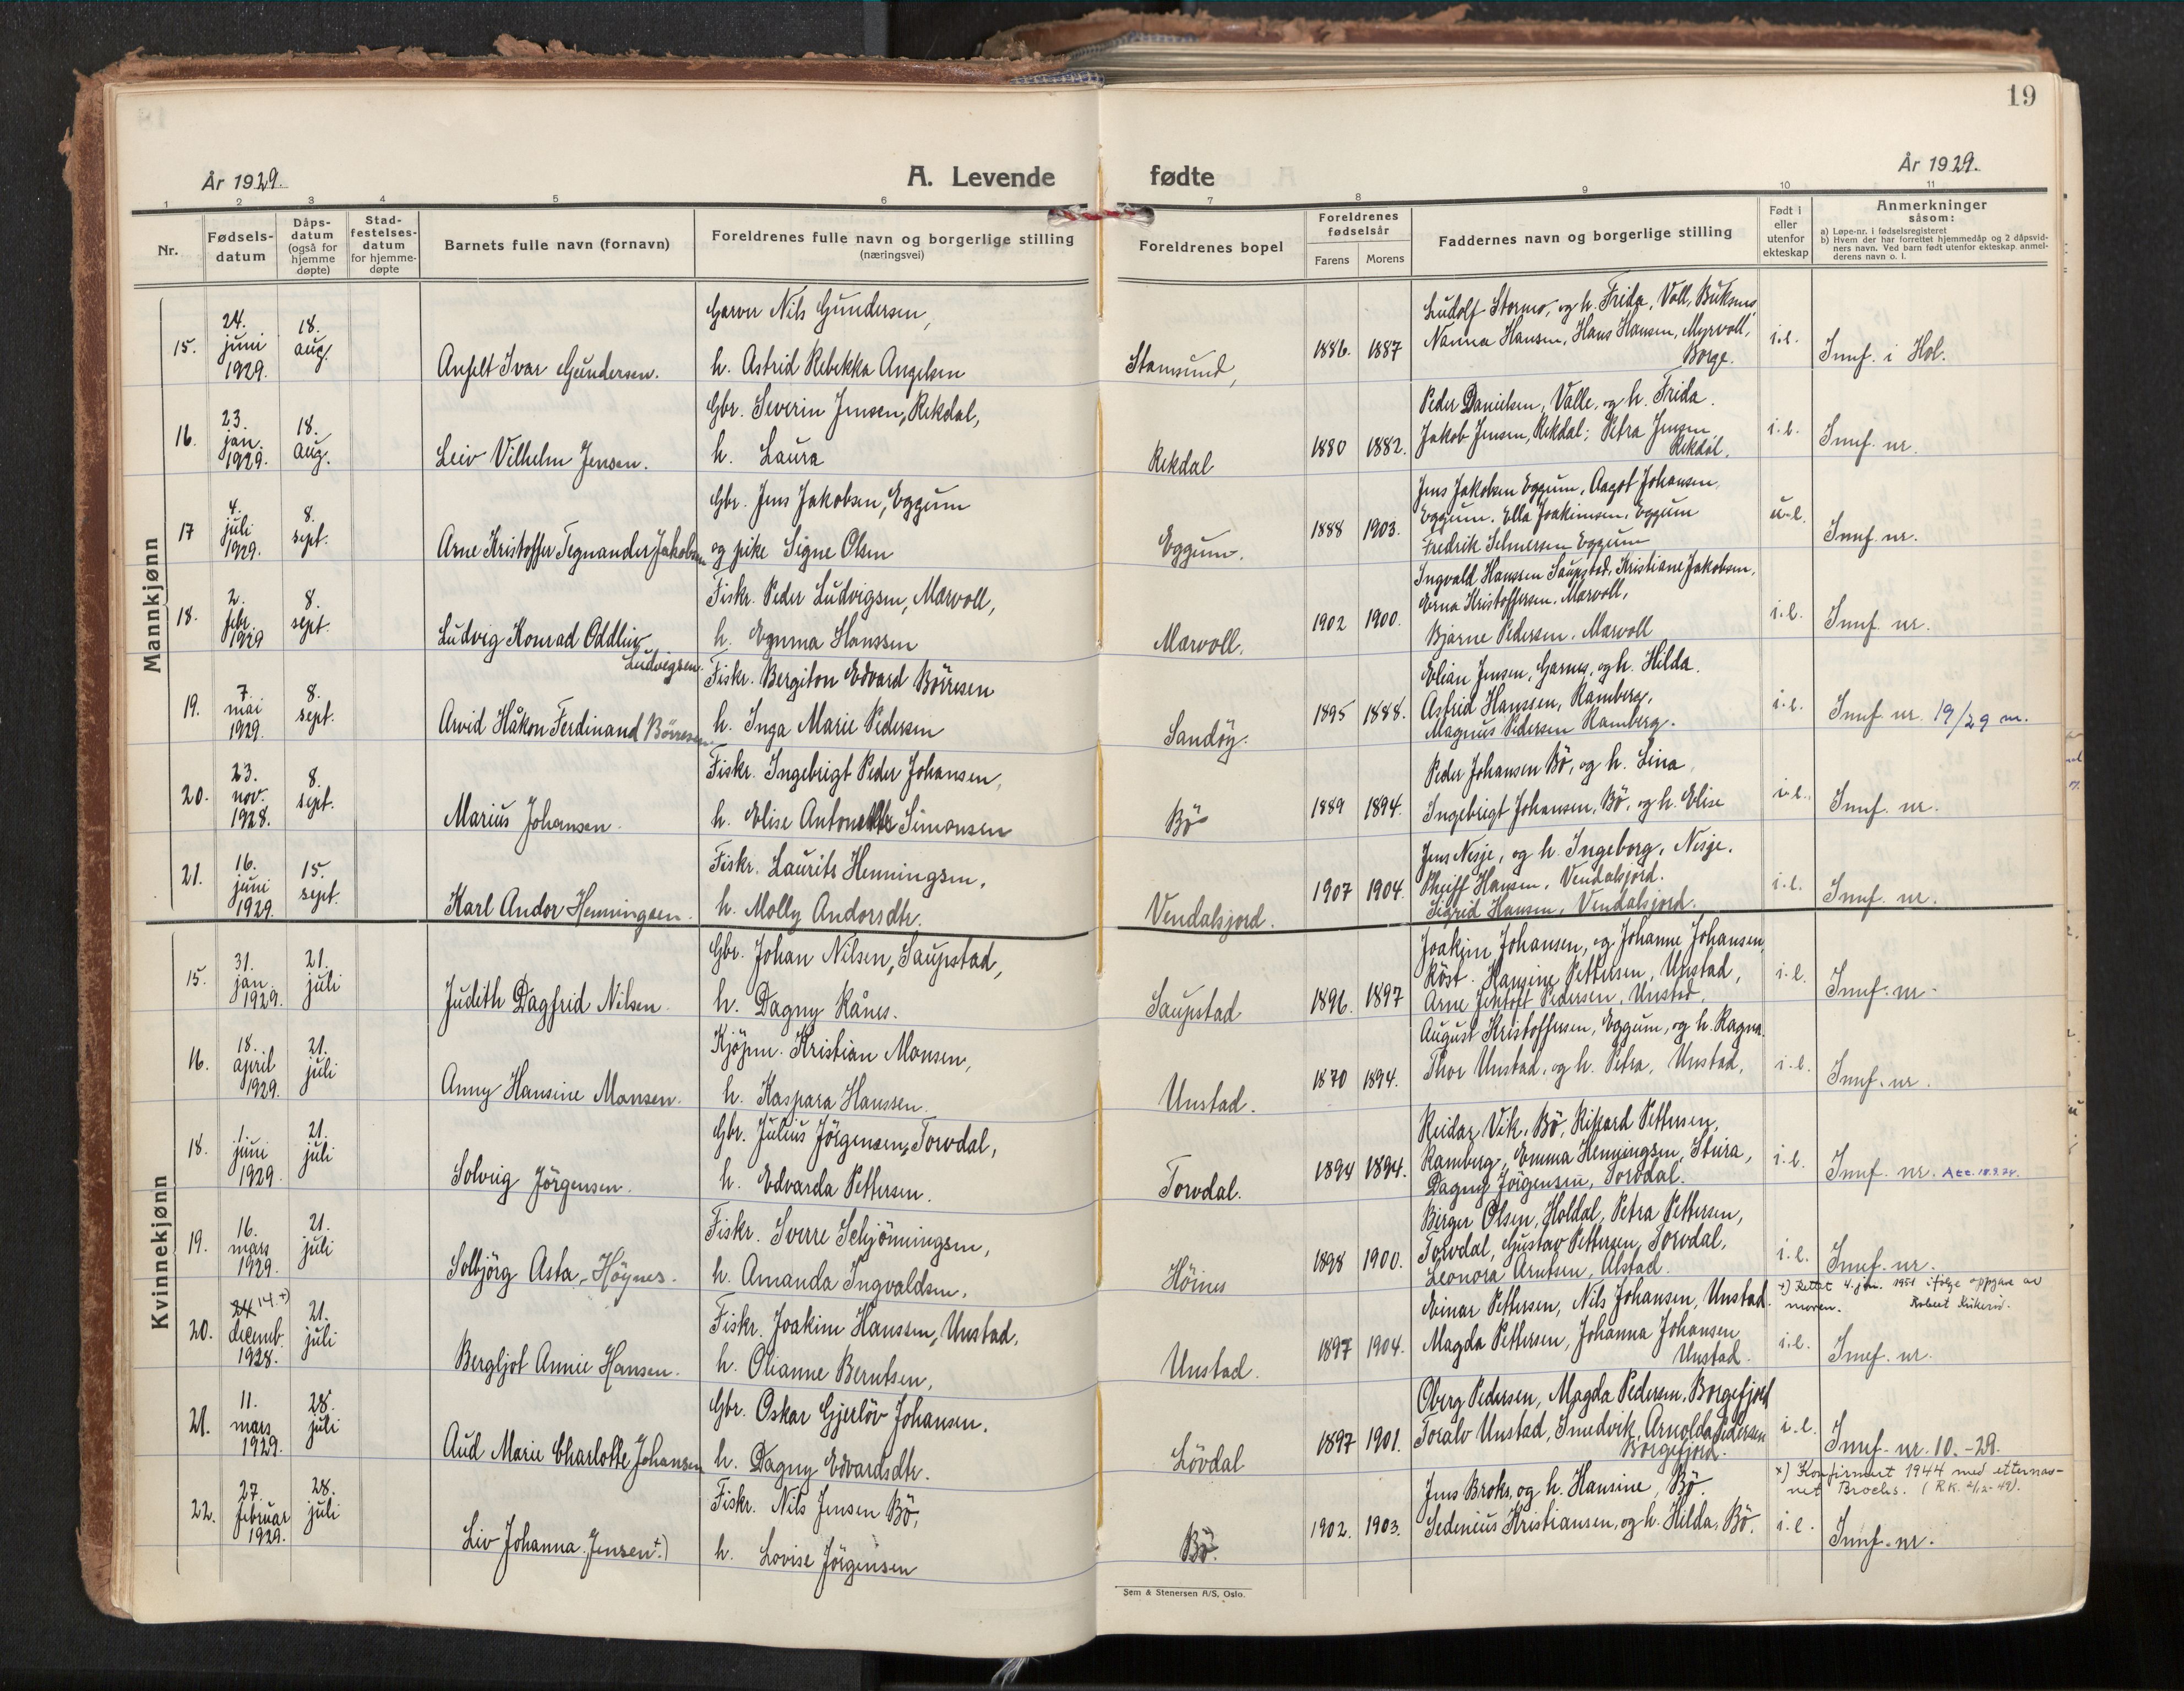 19
År 1929.
A. Levende fødte
År 1929.
1 2 3 4 5 6 7 8 9 10 11
Nr.
Fødselsdatum
Dåpsdatum (også for hjemme døpte)
Stadfestelsesdatum for hjemmedøpte
Barnets fulle navn (fornavn)
Foreldrenes fulle navn og borgerlige stilling (næringsvei)
Foreldrenes bopel
Foreldrenes fødselsår
Farens Morens
Faddernes navn og borgerlige stilling
Født i eller utenfor ekteskap
Anmerkninger såsom:
a) Løpe-nr. i fødselsregisteret
b) Hvem der har forrettet hjemmedåp og 2 dåpsvidners navn. Ved barn født utenfor ekteskap anmelderens navn o. l.
Mannkjønn
15. 24. juni 1929. 18. aug. Anfelt Ivar Gundersen.
Garver Nils Gundersen,
h. Astrid Rebekka Angelsen
Stamsund, 1886. 1887
Ludolf Stormo, og h. Frida, Voll, Buksnes
Nanna Hansen, Hans Hansen, Myrvoll,
Borge.
i.e. Innf. i Hol.
16. 23. jan. 1929. 18. aug. Leiv Vilhelm Jensen.
Gbr. Severin Jensen, Rekdal,
h. Laura
Rekdal 1880 1882.
Peder Danielsen, Valle, og h. Frida.
Jakob Jensen, Rekdal; Petra Jensen
Rekdal.
i.e. Innf. nr.
17 4. juli 1929. 8. sept. Arne Kristoffer Tegnander Jakobsen
Gbr. Jens Jakobsen, Eggum
og pike Signe Olsen
Eggum. 1888 1903.
Jens Jakobsen Eggum, Aagot Johansen,
Eggum. Ella Joakimsen, Eggum
Fredrik Selmersen Eggum
u.e. Innf. nr.
18. 2. febr. 1929 8. sept. Ludvig Konrad Oddleiv
Ludvigsen.
Fiskr. Peder Ludvigsen, Mærvoll,
h. Emma Hanssen
Mærvoll. 1902 1900.
Ingvald Hanssen Saupstad, Kristiane Jakobsen,
Erna Kristoffersen, Mærvoll,
Bjarne Pedersen, Mærvoll
i.e. Innf. nr.
19. 7. mai 1929. 8. sept. Arvid Håkon Ferdinand Börresen
Fiskr. Bergiton Edvard Börresen
h. Inga Marie Pedersen
Sandöy. 1895 1888.
Elian Jensen, Garnes, og h. Hilda.
Astrid Hanssen, Ramberg,
Magnus Pedersen Ramberg.
i.e. Innf. nr. 19/29 m.
20. 23. nov. 1928. 8. sept. Marius Johansen.
Fiskr. Ingebrigt Peder Johansen,
h. Elise Antonette Simonsen
Bö 1889 1894.
Peder Johansen Bö, og h. Lina
Ingebrigt Johansen, Bö, og h. Elise
i.e. Innf. nr.
21. 16. juni 1929. 15. sept. Karl Andor Henningsen.
Fiskr. Laurits Henningsen,
h. Molly Andorsdtr.
Vendalsjord. 1907 1904.
Jens Nesje, og h. Ingeborg, Nesje.
Pheiff Hansen, Vendalsjord.
Sigrid Hansen, Vendalsjord.
i.e. Innf. nr.
Kvinnekjønn
15. 31. jan. 1929. 21. juli Judith Dagfrid Nilsen
Gbr. Johan Nilsen, Saupstad,
h. Dagny Rånes.
Saupstad 1896. 1897
Joakim Johansen, og Johanne Johansen,
Röst. Hansine Pettersen, Unstad,
Arne Jentoft Pedersen, Unstad.
i.e. Innf. nr.
16. 18. april 1929. 21. juli Anny Hansine Monsen.
Kjöpm. Kristian Monsen,
h. Kaspara Hanssen.
Unstad. 1870 1894.
August Kristoffersen, Eggum, og h. Ragna.
Thor Unstad, og h. Petra, Unstad,
i.e. Innf. nr.
18. 1. juni 1929 21. juli Solveig Jörgensen.
Gbr. Julius Jörgensen, Torvdal,
h. Edvarda Pettersen.
Torvdal. 1894 1894.
Reidar Vik, Bö, Rikard Pettersen,
Ramberg, Emma Henningsen, Stura,
Dagny Jörgensen, Torvdal.
i.e. Innf. nr. Att. 18.9.74.
19. 16. mars 1929. 21. juli Solbjörg Asta Höynes.
Fiskr. Sverre Schjönningsen,
h. Amanda Ingvaldsen.
Höines 1898 1900.
Birger Olsen, Holdal, Petra Pettersen,
Torvdal, Gustav Pettersen, Torvdal,
Leonora Arntsen, Alstad.
i.e. Innf. nr.
+) Rettet 4. jan. 1951 ifølge oppgave av
moren.
20. 24 14. +) decemb. 1928. 21. juli Bergljot Annie Hansen.
Fiskr. Joakim Hanssen, Unstad,
h. Olianne Berntsen,
Unstad. 1897 1904.
Einar Pettersen, Nils Johansen, Unstad.
Magda Pettersen, Johanna Johansen
Unstad.
i.e. Innf. nr.
21. 11. mars 1929. 28. juli Aud Marie Charlotte Johansen
Gbr. Oskar Gjerlöv Johansen.
h. Dagny Edvardsdtr.
Lövdal 1897 1901.
Oberg Pedersen, Magda Pedersen, Borgefjord
Toralv Unstad, Smedvik, Arnolda Pedersen
Borgefjord.
i.e. Innf. nr. 10.-29.
x) Konfirmert 1944 med etternav-
net Brochs. (R.K. 2/12-49).
22. 27. februar 1929. 28. juli Liv Johanna Jensen +)
Fiskr. Nils Jensen Bö,
h. Lovise Jörgensen
Bö. 1902. 1903.
Jens Broks, og h. Hansine, Bö.
Sedenius Kristiansen, og h. Hilda, Bö.
i.e. Innf. nr.
Sem & Stenersen A/S, Oslo.